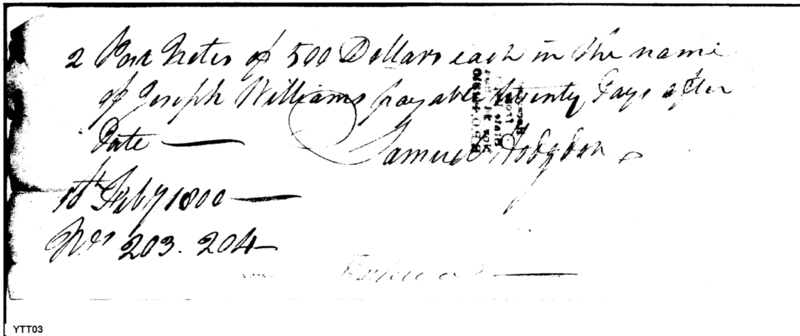 2 Post Notes of 500 Dollars each in the name
of Joseph Williams payable twenty Days after
Date —
Samuel Hodgdon
18th Feby 1800 —
Nos 203. 204
YTT03